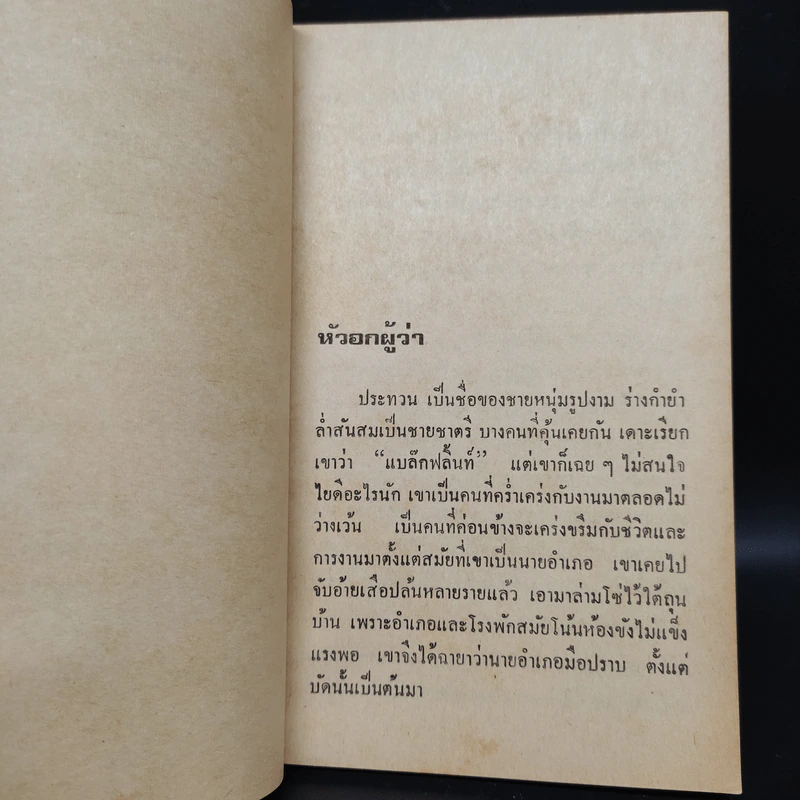 หัวอกผู้ว่า
ประทวน เป็นชื่อของชายหนุ่มรูปงาม ร่างกำยำ
ล่ำสันสมเป็นชายชาตรี บางคนที่คุ้นเคยกัน เดาะเรียก
เขาว่า "แบล๊กฟลิ้นท์" แต่เขาก็เฉย ๆ ไม่สนใจ
ไยดีอะไรนัก เขาเป็นคนที่คร่ำเคร่งกับงานมาตลอดไม่
ว่างเว้น เป็นคนที่ค่อนข้างจะเคร่งขรึมกับชีวิตและ
การงานมาตั้งแต่สมัยที่เขาเป็นนายอำเภอ เขาเคยไป
จับอ้ายเสือปล้นหลายรายแล้ว เอามาล่ามโซ่ไว้ใต้ถุน
บ้าน เพราะอำเภอและโรงพักสมัยโน้นห้องขังไม่แข็ง
แรงพอ เขาจึงได้ฉายาว่านายอำเภอมือปราบ ตั้งแต่
บัดนั้นเป็นต้นมา